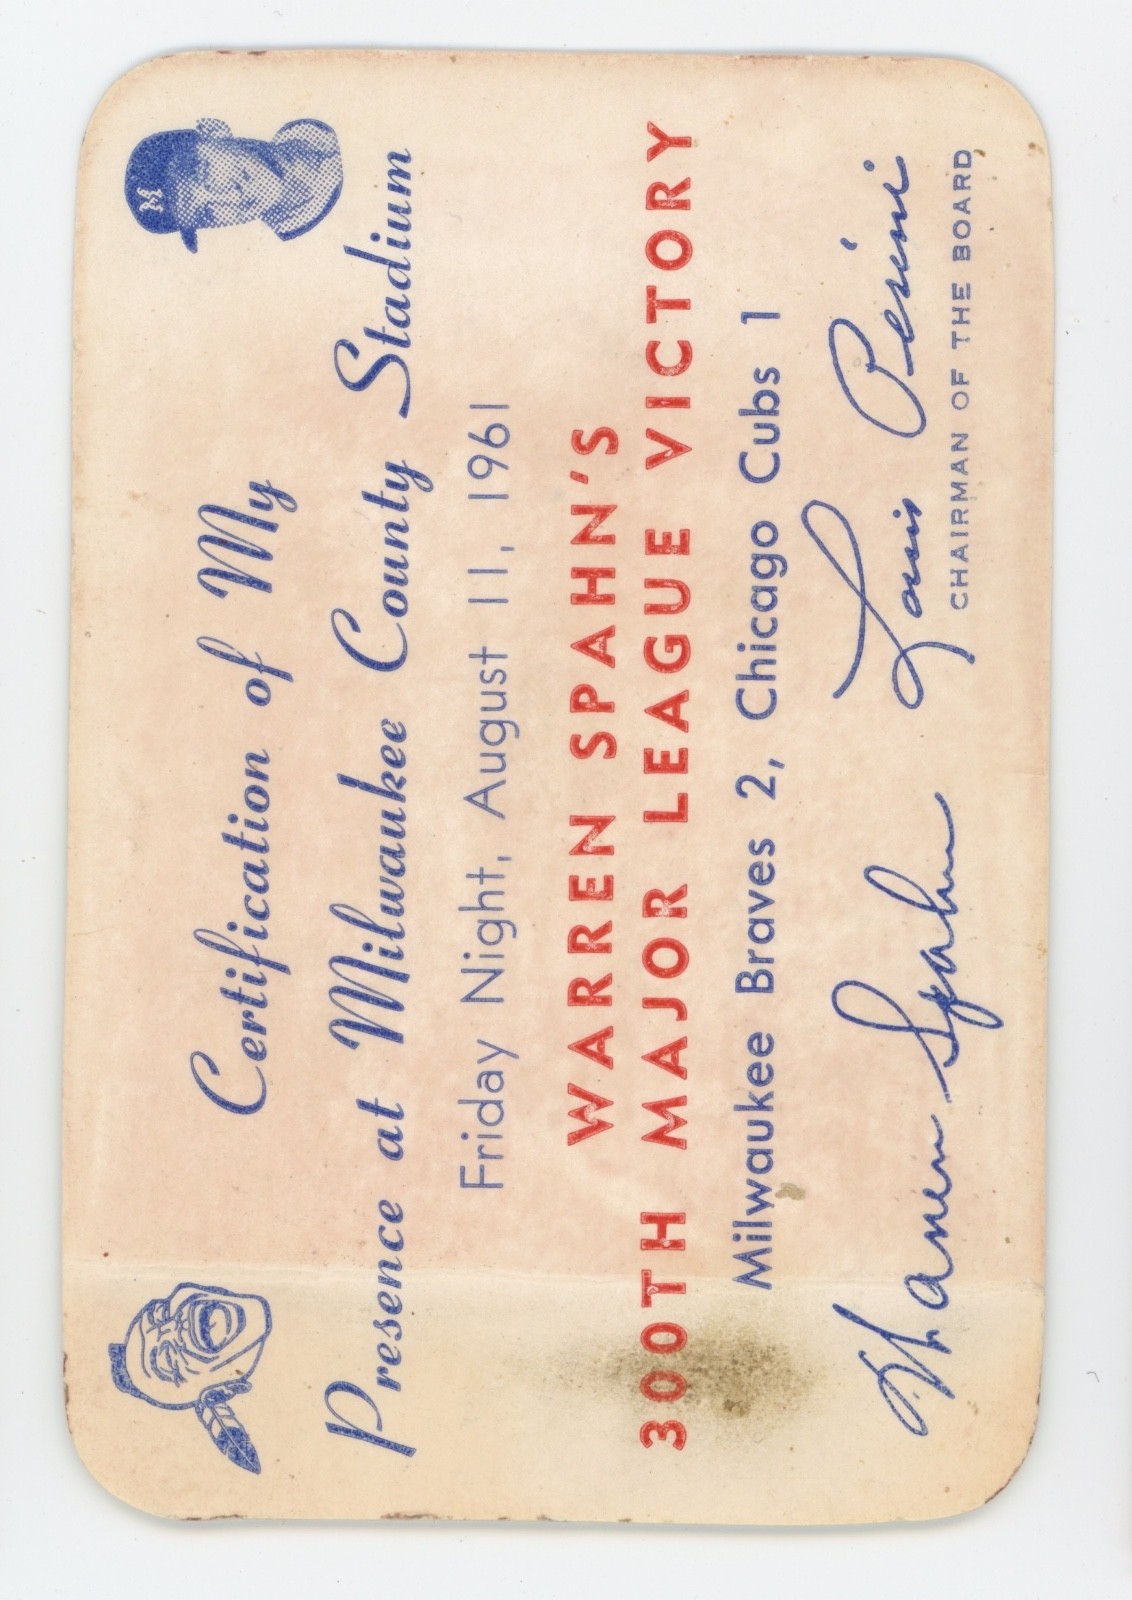 M
Certification of My
Presence at Milwaukee County Stadium
Friday Night, August 11, 1961
WARREN SPAHN'S
300TH MAJOR LEAGUE VICTORY
Milwaukee Braves 2, Chicago Cubs 1
Warren Spahn Louis Perini
CHAIRMAN OF THE BOARD